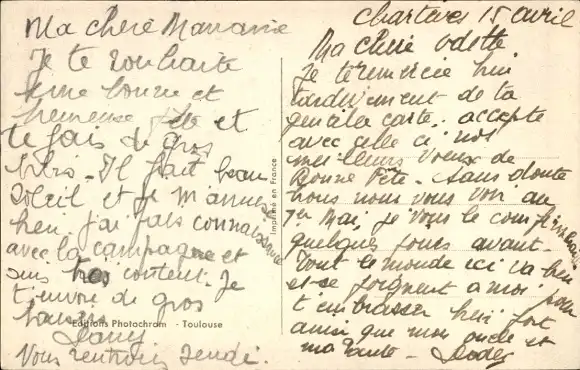 Ma chère Marraine
Je te souhaite
une bonne et
heureuse fête et
te fais de gros
bibis - Il fait beau
soleil et je m'amuse
bien. j'ai fais connaissance
avec la campagne et
suis très content. Je
t'envoie de gros
baisers
Dany
Vous rentrons jeudi.
Editions Photochrom - Toulouse
Imprimé en France
Chartres 15 avril
Ma chère Odette
Je te remercie bien
tardivement de ta
gentille carte. accepte
avec celle ci nos
meilleurs voeux de
Bonne Fête - Sans doute
nous nous vous voir au
1er Mai, je vous le confirmerai
quelques jours avant.
Tout le monde ici va bien
et se joignent à moi pour
t'embrasser bien fort
ainsi que mon oncle et
ma tante -